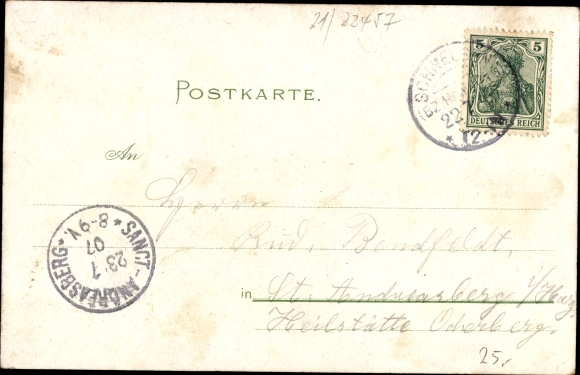 21/22457
5 5
DEUTSCHES REICH
22.1
* 12-
POSTKARTE.
An
Herrn
Rud. Bendfeldt.
SANCT-ANDREASBERG *
23 1
07
* 8-9V.
in St. Andreasberg i/Harz
Heilstätte Oderberg.
25.